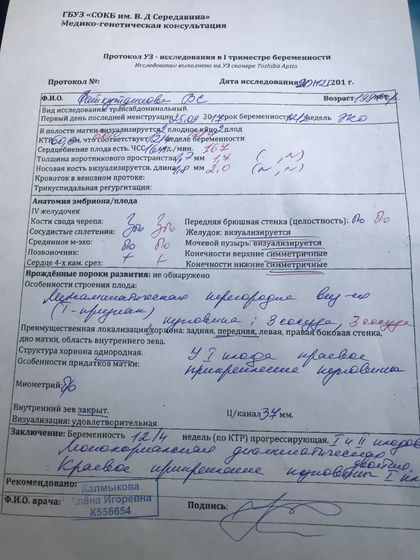 ГБУЗ «СОКБ им. В. Д Середавина»
Медико-генетическая консультация
Протокол УЗ - исследования в I триместре беременности
Исследование выполнено на УЗ сканере Toshiba Aplio
Протокол №: Дата исследования 201 г.
Ф.И.О. ВС Возраст
Вид исследования: трансабдоминальный.
Первый день последней менструации 2017 срок беременности недель ЭКО
В полости матки визуализируется 2 плодное яйцо 2 плод
КТР мм, что соответствует 12/4 неделе беременности
Сердцебиение плода есть. ЧСС уд./мин. 167
Толщина воротникового пространства 1,7 мм 1,7 (N, N)
Носовая кость визуализируется, длина 1,8 мм 2,0 (N, N)
Кровоток в венозном протоке:
Трикуспидальная регургитация:
Анатомия эмбриона/плода
IV желудочек
Кости свода черепа Передняя брюшная стенка (целостность):
Сосудистые сплетения: Желудок: визуализируется
Срединное м-эхо: Мочевой пузырь: визуализируется
Позвоночник: + + Конечности верхние симметричные
Сердце 4-х кам. срез: + + Конечности нижние симметричные
Врождённые пороки развития: не обнаружено
Особенности строения плода:
перегородка
(Т-признак) пуповина: 3 сосуда, 3 сосуда
Преимущественная локализация хориона: задняя, передняя, левая, правая боковая стенка,
дно матки, область внутреннего зева.
Структура хориона однородная. У I плода краевое
Особенности придатков матки: прикрепление пуповины
Миометрий:
Внутренний зев закрыт. Ц/канал 37 мм.
Визуализация: удовлетворительная
Заключение: Беременность 12/4 недель (по КТР) прогрессирующая. I и II плодов
Монохориальная диамниотическая двойня.
Краевое прикрепление пуповины I
Рекомендовано:
Калмыкова
Алёна Игоревна
К556654
Ф.И.О. врача: Подпись: